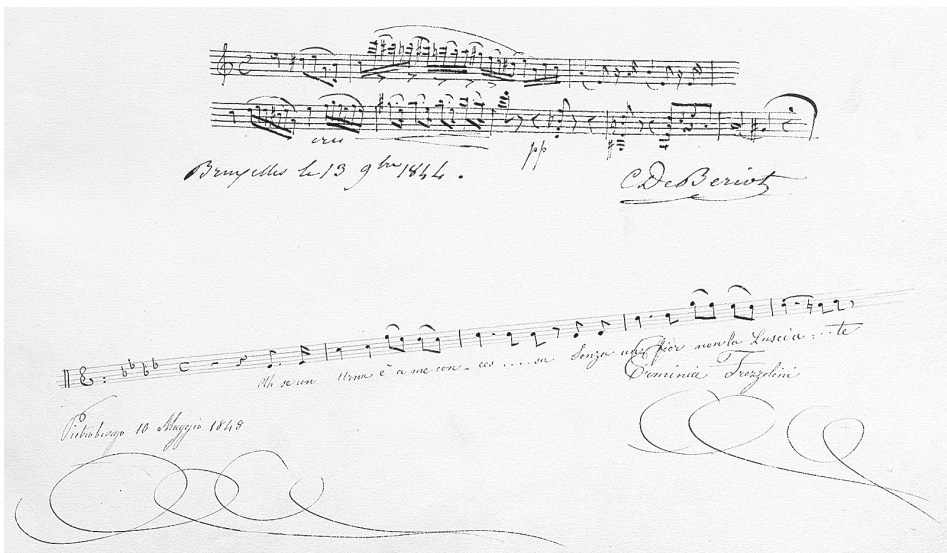 cres
pp
Bruxelles le 13 9bre 1844.
C De Beriot
Ah se un Urna è a me con-ces.....sa Senza un fior non la Lascia...te
Erminia Frezzolini
Pietroburgo 10 Maggio 1848